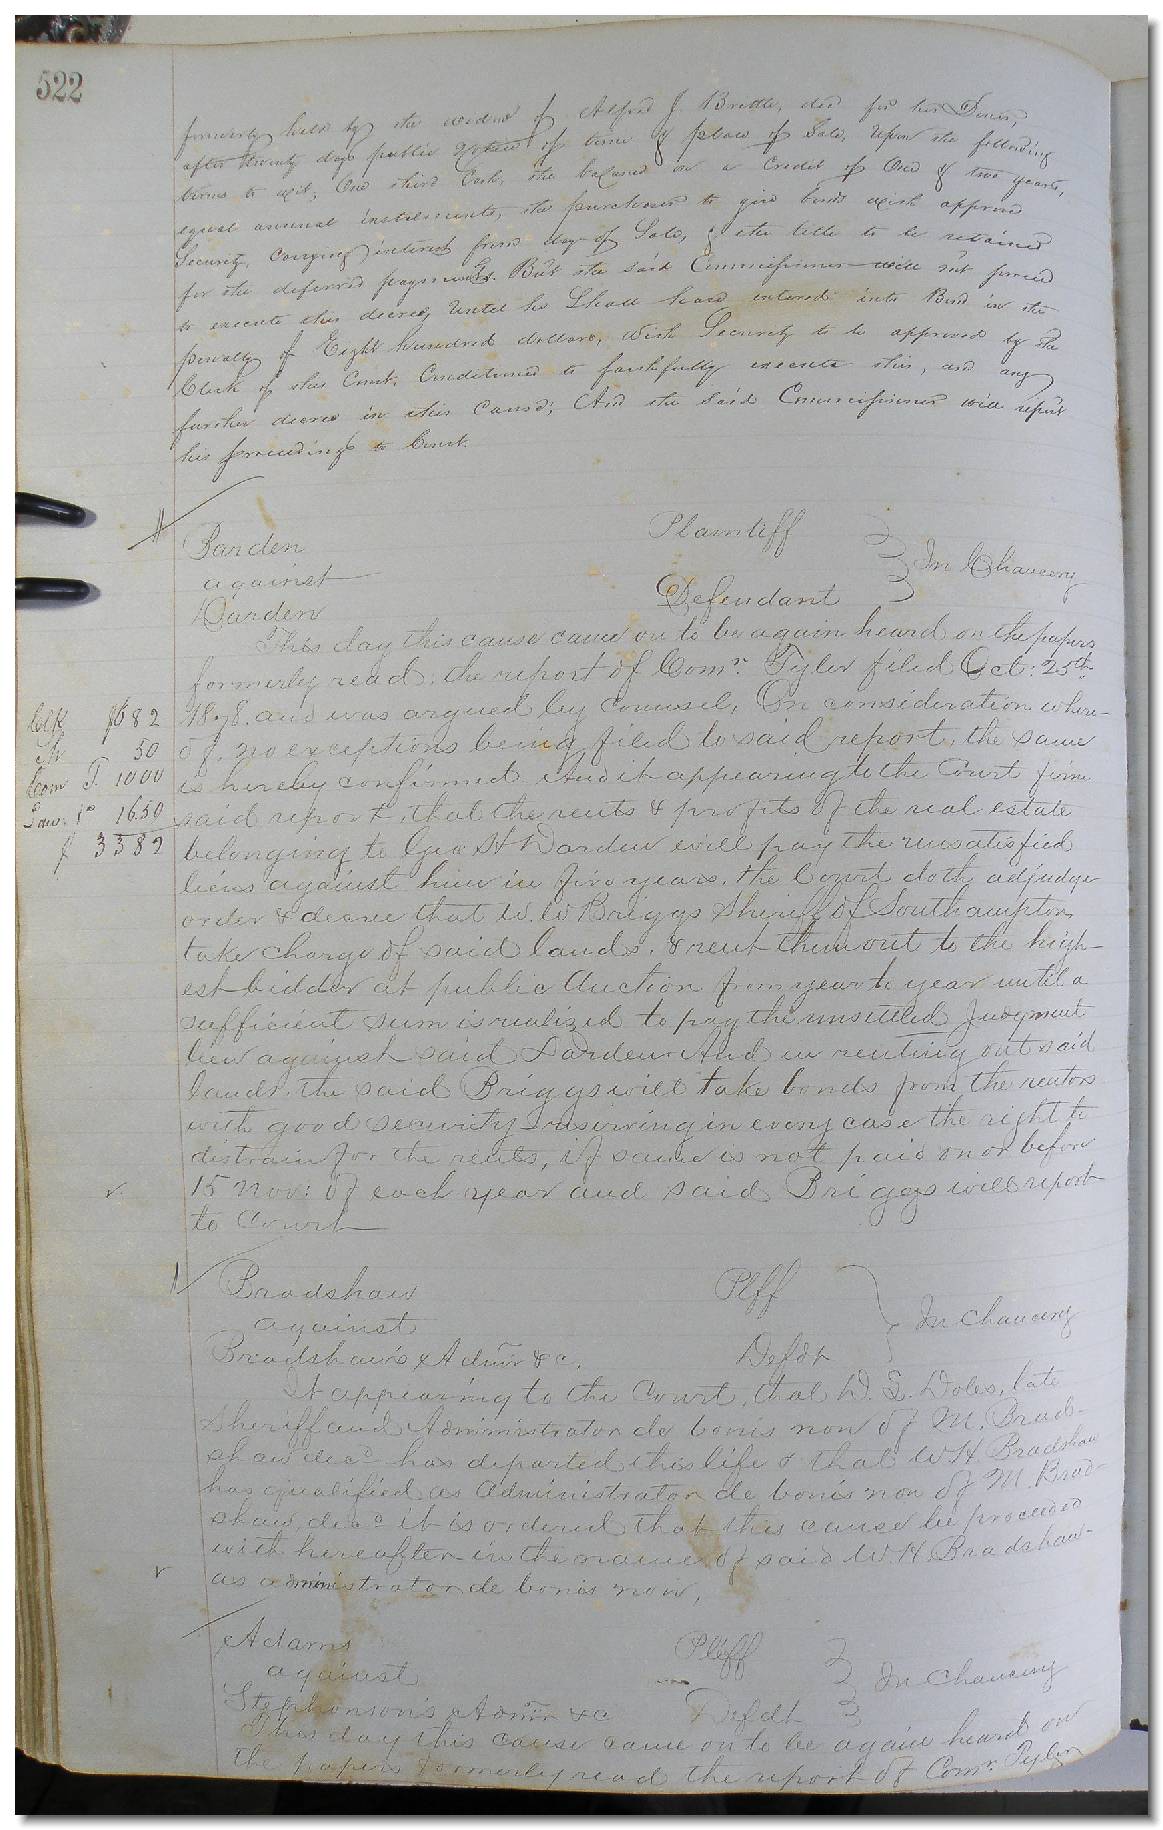 522
formerly held by the widow of Alfred J. Britte, decd for her Dower,
after twenty days public notice of time & place of Sale, upon the following
terms to wit; One third Cash, the balance on a Credit of One & two years,
equal annual instalments, the purchaser to give bonds with approved
Security, carrying interest from day of Sale, & the title to be retained
for the deferred payments. But the said Commissioner will not proceed
to execute this decree, until he Shall have entered into Bond in the
penalty of Eight hundred dollars, with Security to be approved by the
Clerk of this Court, Conditioned to faithfully execute this, and any
further decree in this Cause; And the said Commissioner will report
his proceedings to Court.
Darden Plaintiff
against In Chancery
Darden Defendant
This day this cause came on to be again heard on the papers
formerly read, the report of Comr. Tyler filed Oct: 25th
1878. and was argued by counsel, On consideration where-
Clk $6 82
of, no exceptions being filed to said report, the same
Sh 50
is hereby confirmed And it appearing to the Court from
Com T. 10 00
said report, that the rents & profits of the real estate
16.50
belonging to Geo H Darden will pay the unsatisfied
$ 33 82
liens against him in five years, the Court doth adjudge
order & decree that W. W Briggs Sheriff of Southampton
take charge of said lands, & rent them out to the high-
est bidder at public Auction from year to year until a
sufficient sum is realized to pay the unsettled Judgment
lien against said Darden And in renting out said
lands, the said Briggs will take bonds from the renters
with good security reserving in every case the right to
distrain for the rents, if same is not paid on or before
15 Nov: of each year and said Briggs will report
to Court
Bradshaw Plff
against In Chancery
Bradshaw's Admr &c. Defdt
It appearing to the Court, that D. S. Doles, late
Sheriff and Administrator de bonis non of M. Brad-
shaw decd has departed this life & that W H Bradshaw
has qualified as Administrator de bonis non of M. Brad-
shaw, decd it is ordered that this cause be proceeded
with hereafter in the name of said W H Bradshaw
as administrator de bonis non,
Adams Plff
against In Chancery
Stephenson's Admr &c Defdt
This day this cause came on to be again heard on
the papers formerly read the report of Comr. Tyler